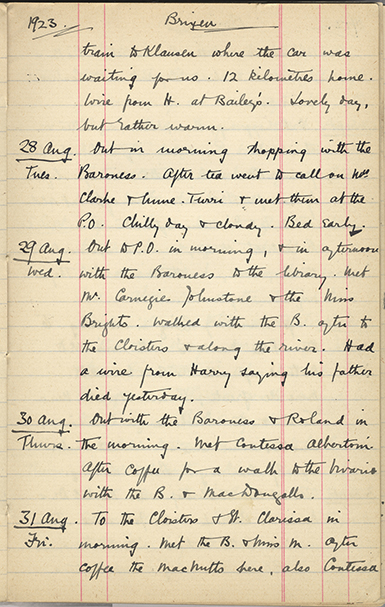 1923. Brixen
train to Klausen where the car was
waiting for us. 12 kilometres home.
Wire from H. at Bailey's. Lovely day,
but rather warm.
28 Aug. Out in morning shopping with the
Tues. Baroness. After tea went to call on Mrs
Clarke & Mme. Turri & met them at the
P.O. Chilly day & cloudy. Bed early.
29 Aug. Out to P.O. in morning, & in afternoon
Wed. with the Baroness to the library. Met
Mr. Carnegie Johnstone & the Miss
Brights. Walked with the B. after to
the Cloisters & along the river. Had
a wire from Harry saying his father
died yesterday.
30 Aug. Out with the Baroness & Roland in
Thurs. the morning. Met Contessa Albertoni.
After coffee for a walk to the
with the B. & MacDougalls.
31 Aug. To the Cloisters & St. Clarissa in
Fri. morning. Met the B. & Miss M. After
coffee the MacNutts here, also Contessa